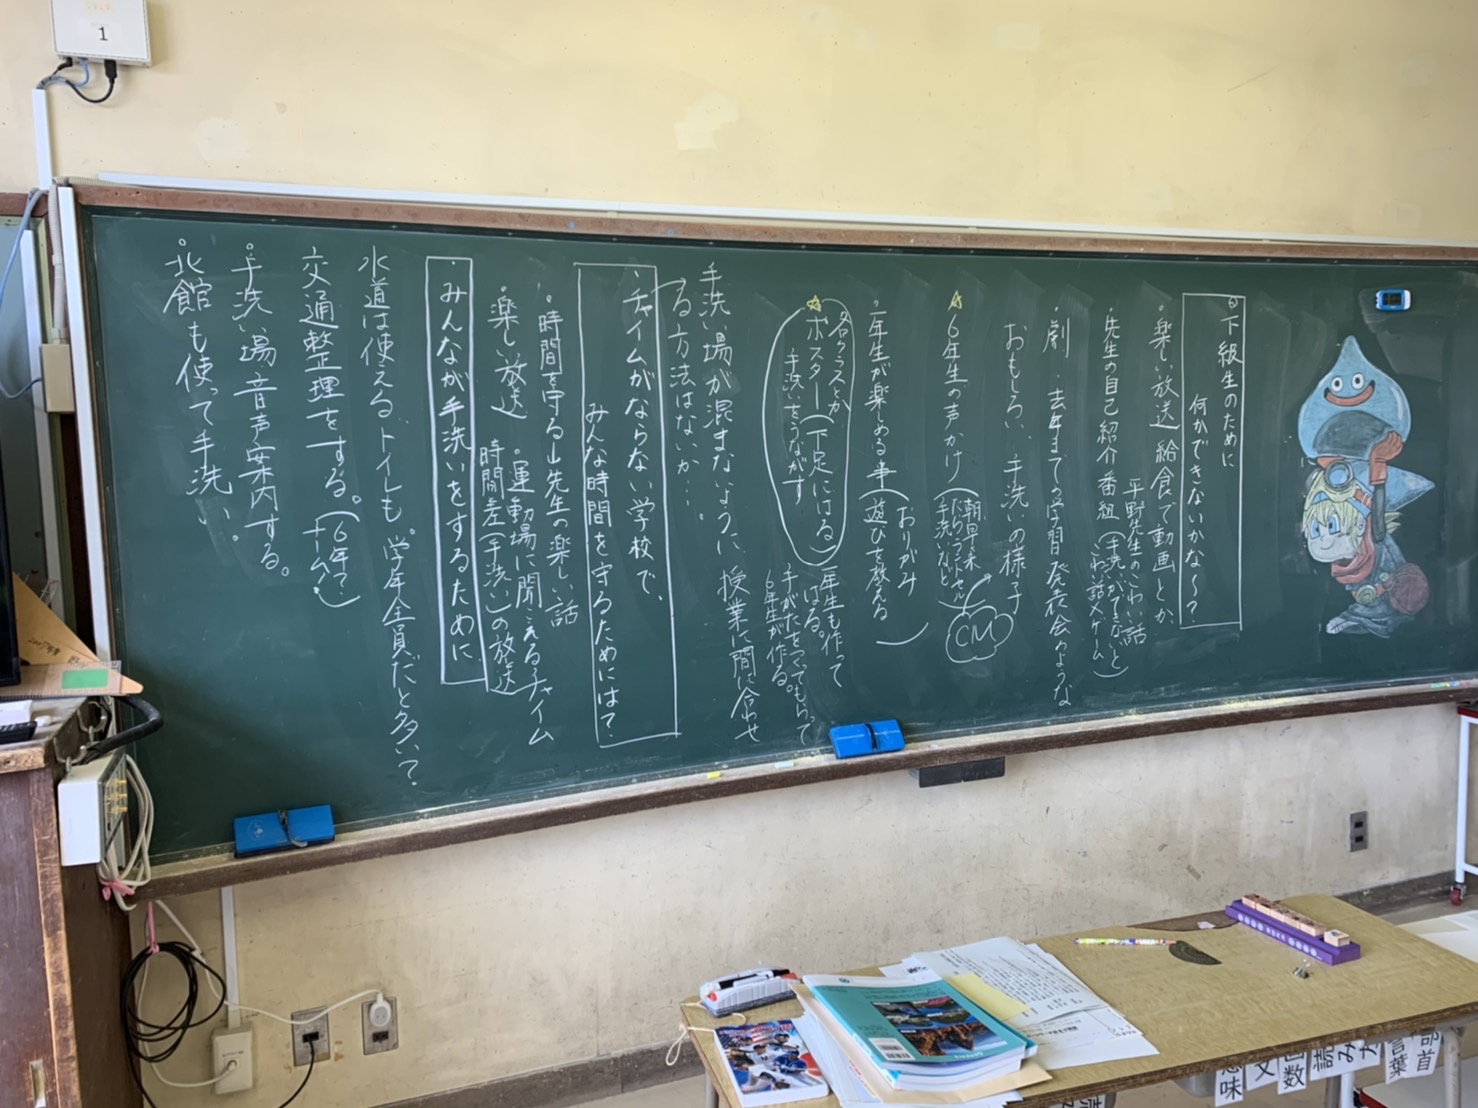 下級生のために
何かできないかな〜？
・楽しい放送 給食で動画とか
平野先生のこわい話
・先生の自己紹介番組（手洗いができないと）
こわい話×ゲーム
・劇・去年までの学習発表会のような
おもしろい、手洗いの様子
☆6年生の声かけ
朝早く来
たらつけとサル
手洗いなど
CM
・一年生が楽める事（遊びを教える
おりがみ
各クラスとか
☆ポスター（下足にはる）
手洗いをうながす
一年生も作って
はる。
手がたをつくってもらって
6年生が作る。
手洗い場が混まないように、授業に間に合わせ
る方法はないか…。
・チャイムがならない学校で、
みんな時間を守るためには？
・時間を守る山先生の楽しい話
楽しい放送
・運動場に聞こえるチャイム
時間差（手洗い）の放送
・みんなが手洗いをするために
水道は使える、トイレも。学年全員だと多いて
交通整理をする。（6年？）
チーム？
・手洗い場・音声案内する。
・北館も使って手洗い。
1
意味
文
画数
読み
言葉
部首